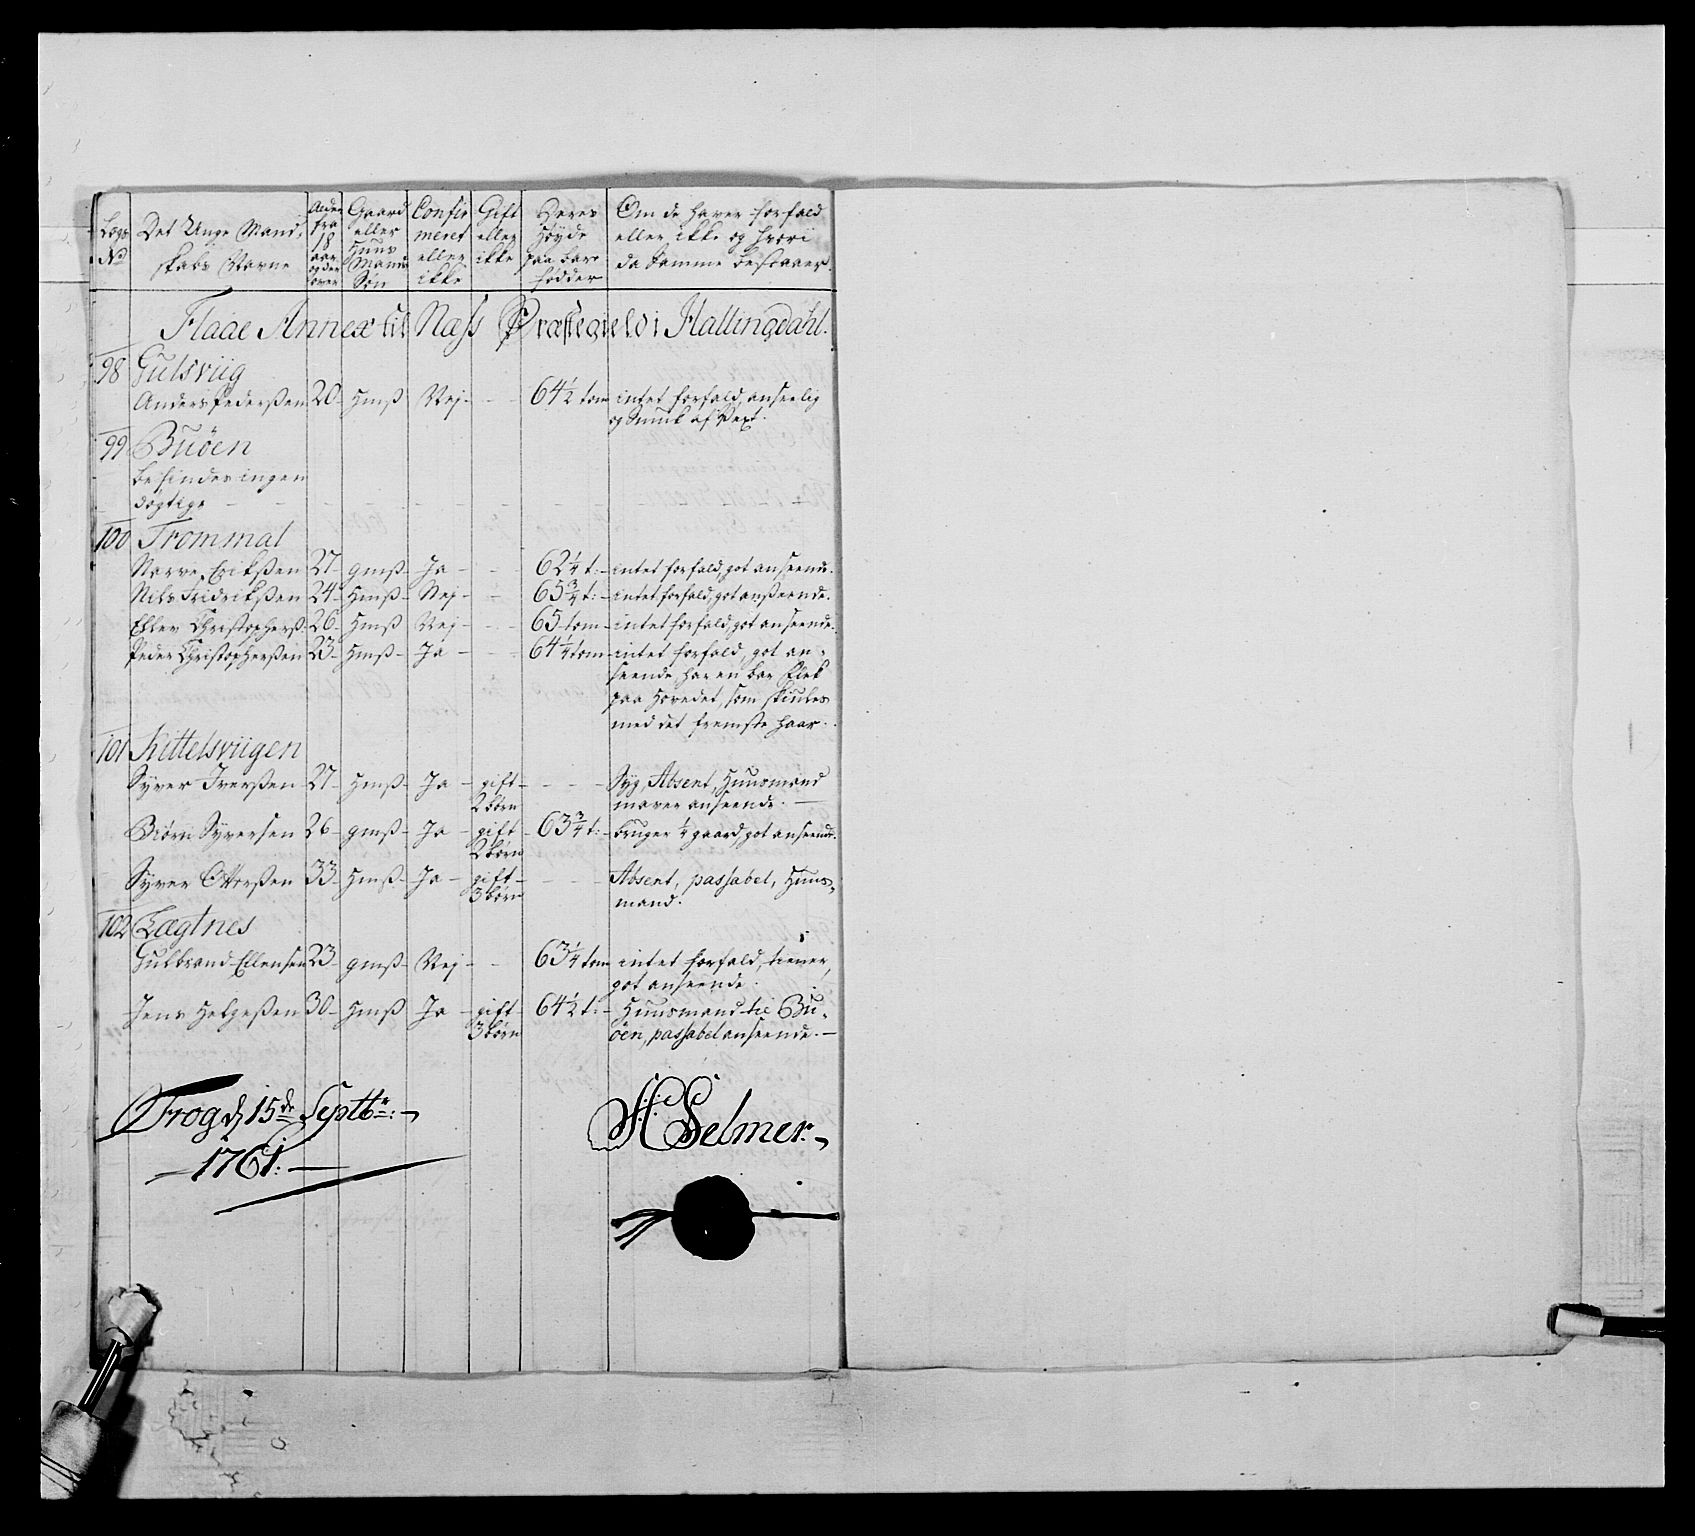 Lægs No | Det Unge Mandskabs Navne | Alder fra 18 aar og der over | Gaard eller Huus Mands Søn | Confirmeret eller ikke | Gift eller ikke | Deres Høyde paa bare fødder | Om de haver forfald eller ikke og hvori da Samme bestaaer.
Flaae Annex til Næss Præstegield i Hallingdahl.
98 Gulsviig
Anders Pedersßen 20- Hmß Nej- - 64½ tom intet forfald, anseelig
og Smuk af Vext.
99 Buöen
befindes ingen
dögtige - - -
100 Trommal
Narve Erikßen 27- gmß- Ja- - 62¼ t:- intet forfald, got anseende.
Nils Fridrikßen 24- Hmß- Nej- - 65¾ t:- intet forfald, got anßeende.
Ehlev Christopherß: 26- Hmß Nej- - 65 tom- intet forfald, got anseende.
Peder Christopherßen 23- Hmß- Ja- - 64¼ tom- intet forfald, got an-
seende, har en bar Flek
paa Hovedet, som skiules
med det fremste haar.
101 Kittelsviigen
Syver Iverßen 27- Hmß- Ja- gift- - - Syg, Absent, Huusmand
2 børn maver anseende. -
Biörn Syversen 26- gmß- Ja- gift- 63¾ t:- bruger ¼ gaard, got anseende.
2 børn
Syver Otterßen 33- Hmß- Ja- gift- - - Absent, passabel, Huus-
3 børn mand.
102 Lægtnes
Gulbrand Ellensen 23- gmß- Nej- - 63¼ tom intet forfald, tiener,
got anseende.
Jens Helgeßen 30- Hmß Ja- gift- 64½ t:- Huusmand til Bu-
3 børn öen, passabel anseende. -
Frog d 15de Septbr: -
- 1761. -
HC Selmer.